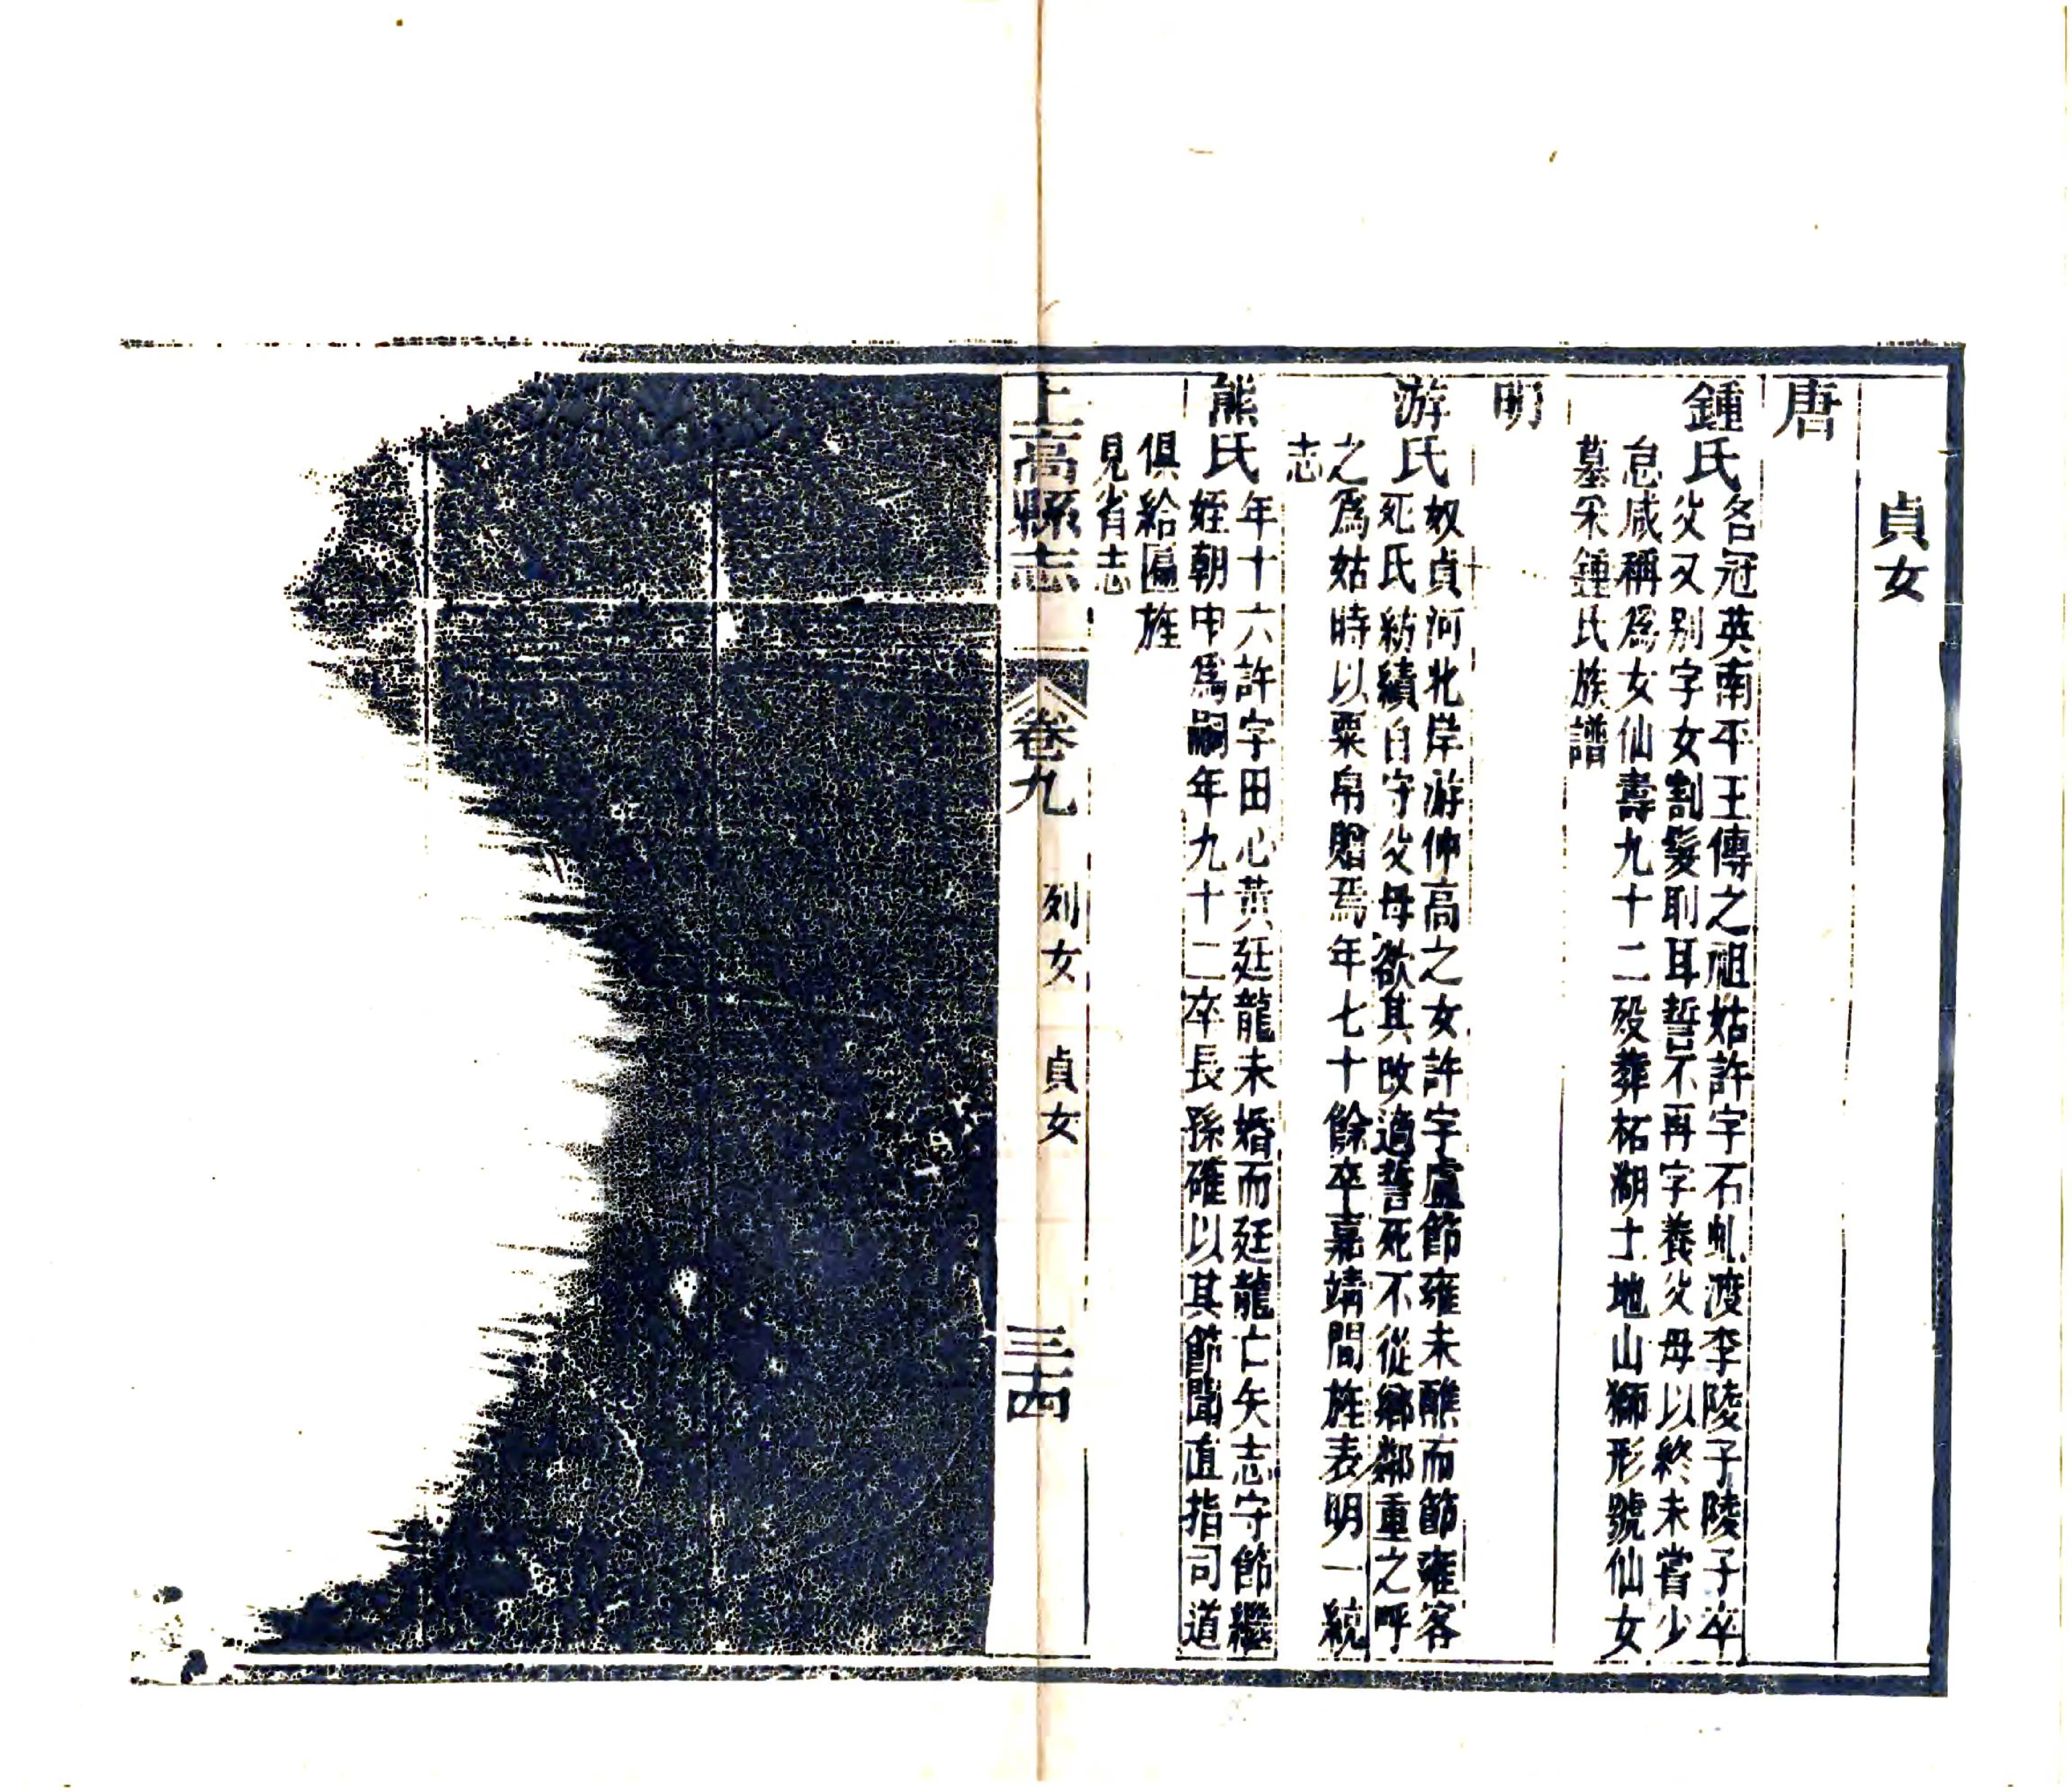 貞女
唐
鍾氏名冠英南平王傳之祖姑許字石虬渡李陵子陵子卒
父又別字女割髮刵耳誓不再字養父母以終未嘗少
怠咸稱爲女仙壽九十二歿葬柘湖土地山獅形號仙女
墓采鍾氏族譜
明
游氏奴貞河北岸游仲高之女許字盧節雍未醮而節雍客
死氏紡績自守父母欲其改適誓死不從鄉鄰重之呼
之爲姑時以粟帛贈焉年七十餘卒嘉靖間旌表明一統
志
熊氏年十六許字田心黃廷龍未婚而廷龍亡矢志守節繼
姪朝中爲嗣年九十二卒長孫確以其節聞直指司道
俱給匾旌
見省志
上高縣志
卷九
列女 貞女
三十四